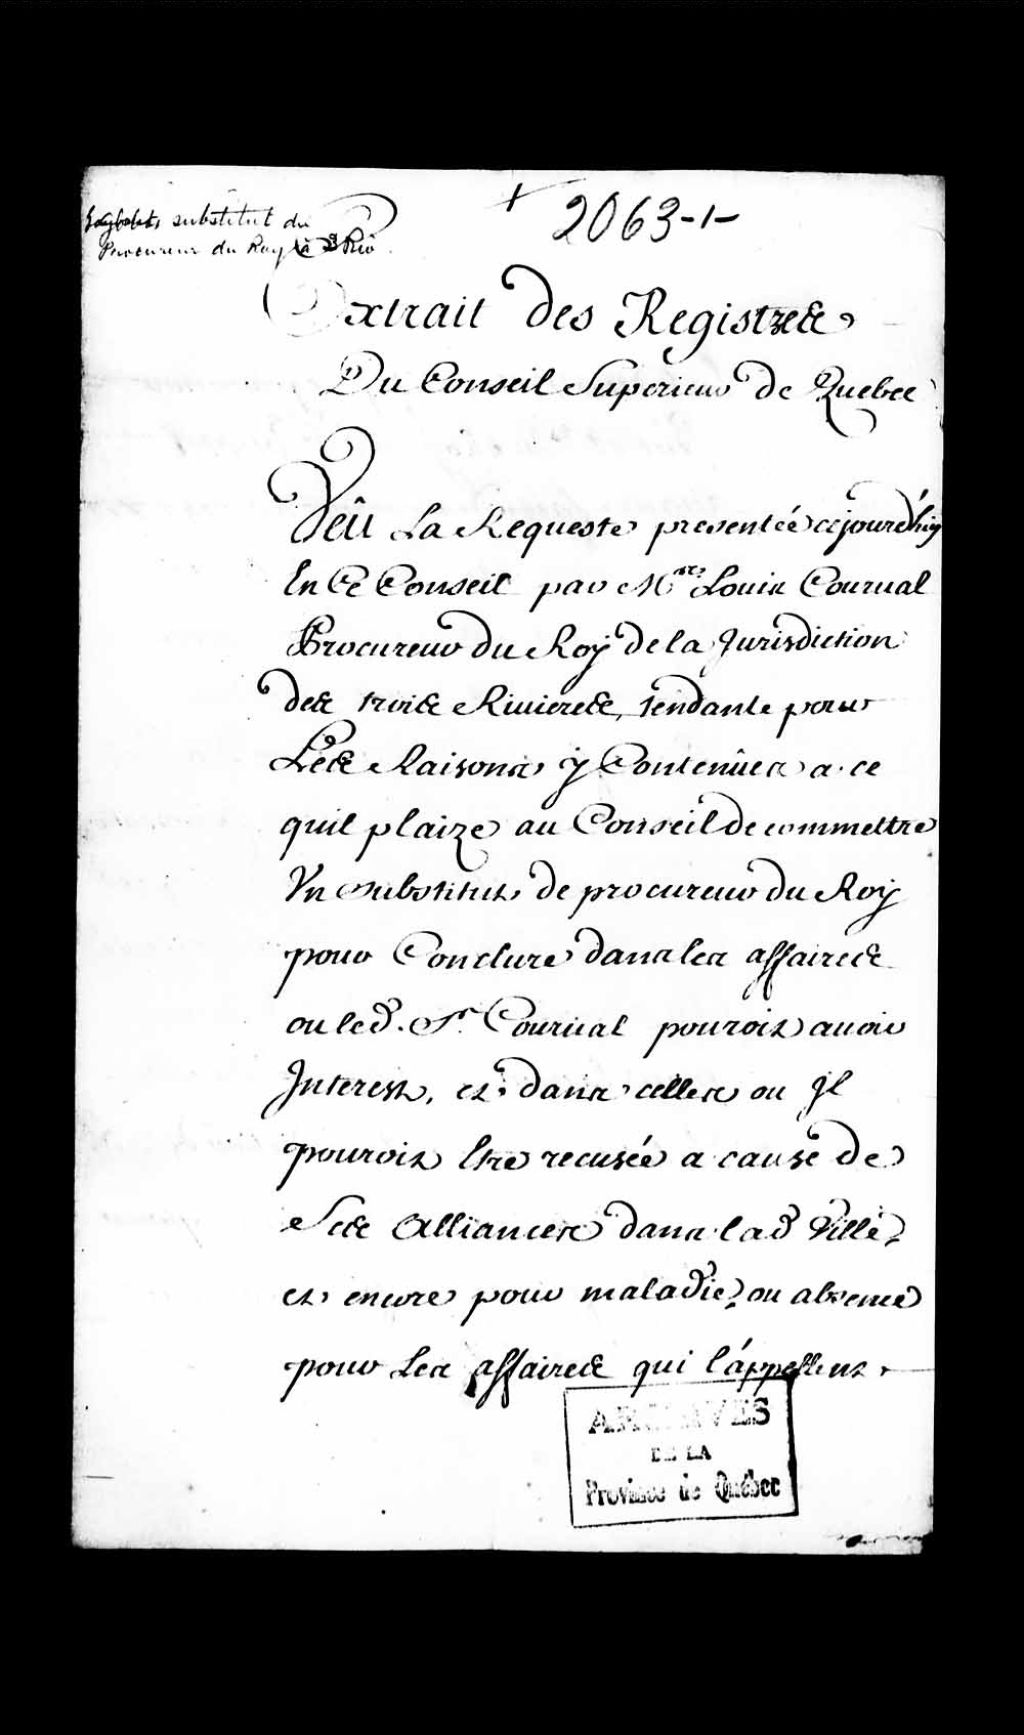 substitut du
Procureur du Roy à 3 Riv.
2063-1-
Extrait des Registres
Du Conseil Superieur de Quebec
Veû La Requeste presentée cejourd'huy
En Ce Conseil par Mtre Louis Courual
Procureur du Roy de la Jurisdiction
des trois Riuieres, tendante pour
Les Raisons y Contenües a ce
quil plaize au Conseil de commettre
Un substitut de procureur du Roy
pour Conclure dans les affaires
ou led. Sr. Courual pouroit auoir
Interest, et dans celles ou Il
pouroit Etre recusée a cause de
Ses Alliances dans lad Ville,
et encore pour maladie, ou absence
pour Les affaires qui l'áppellent
ARCHIVES
DE LA
Province de Québec